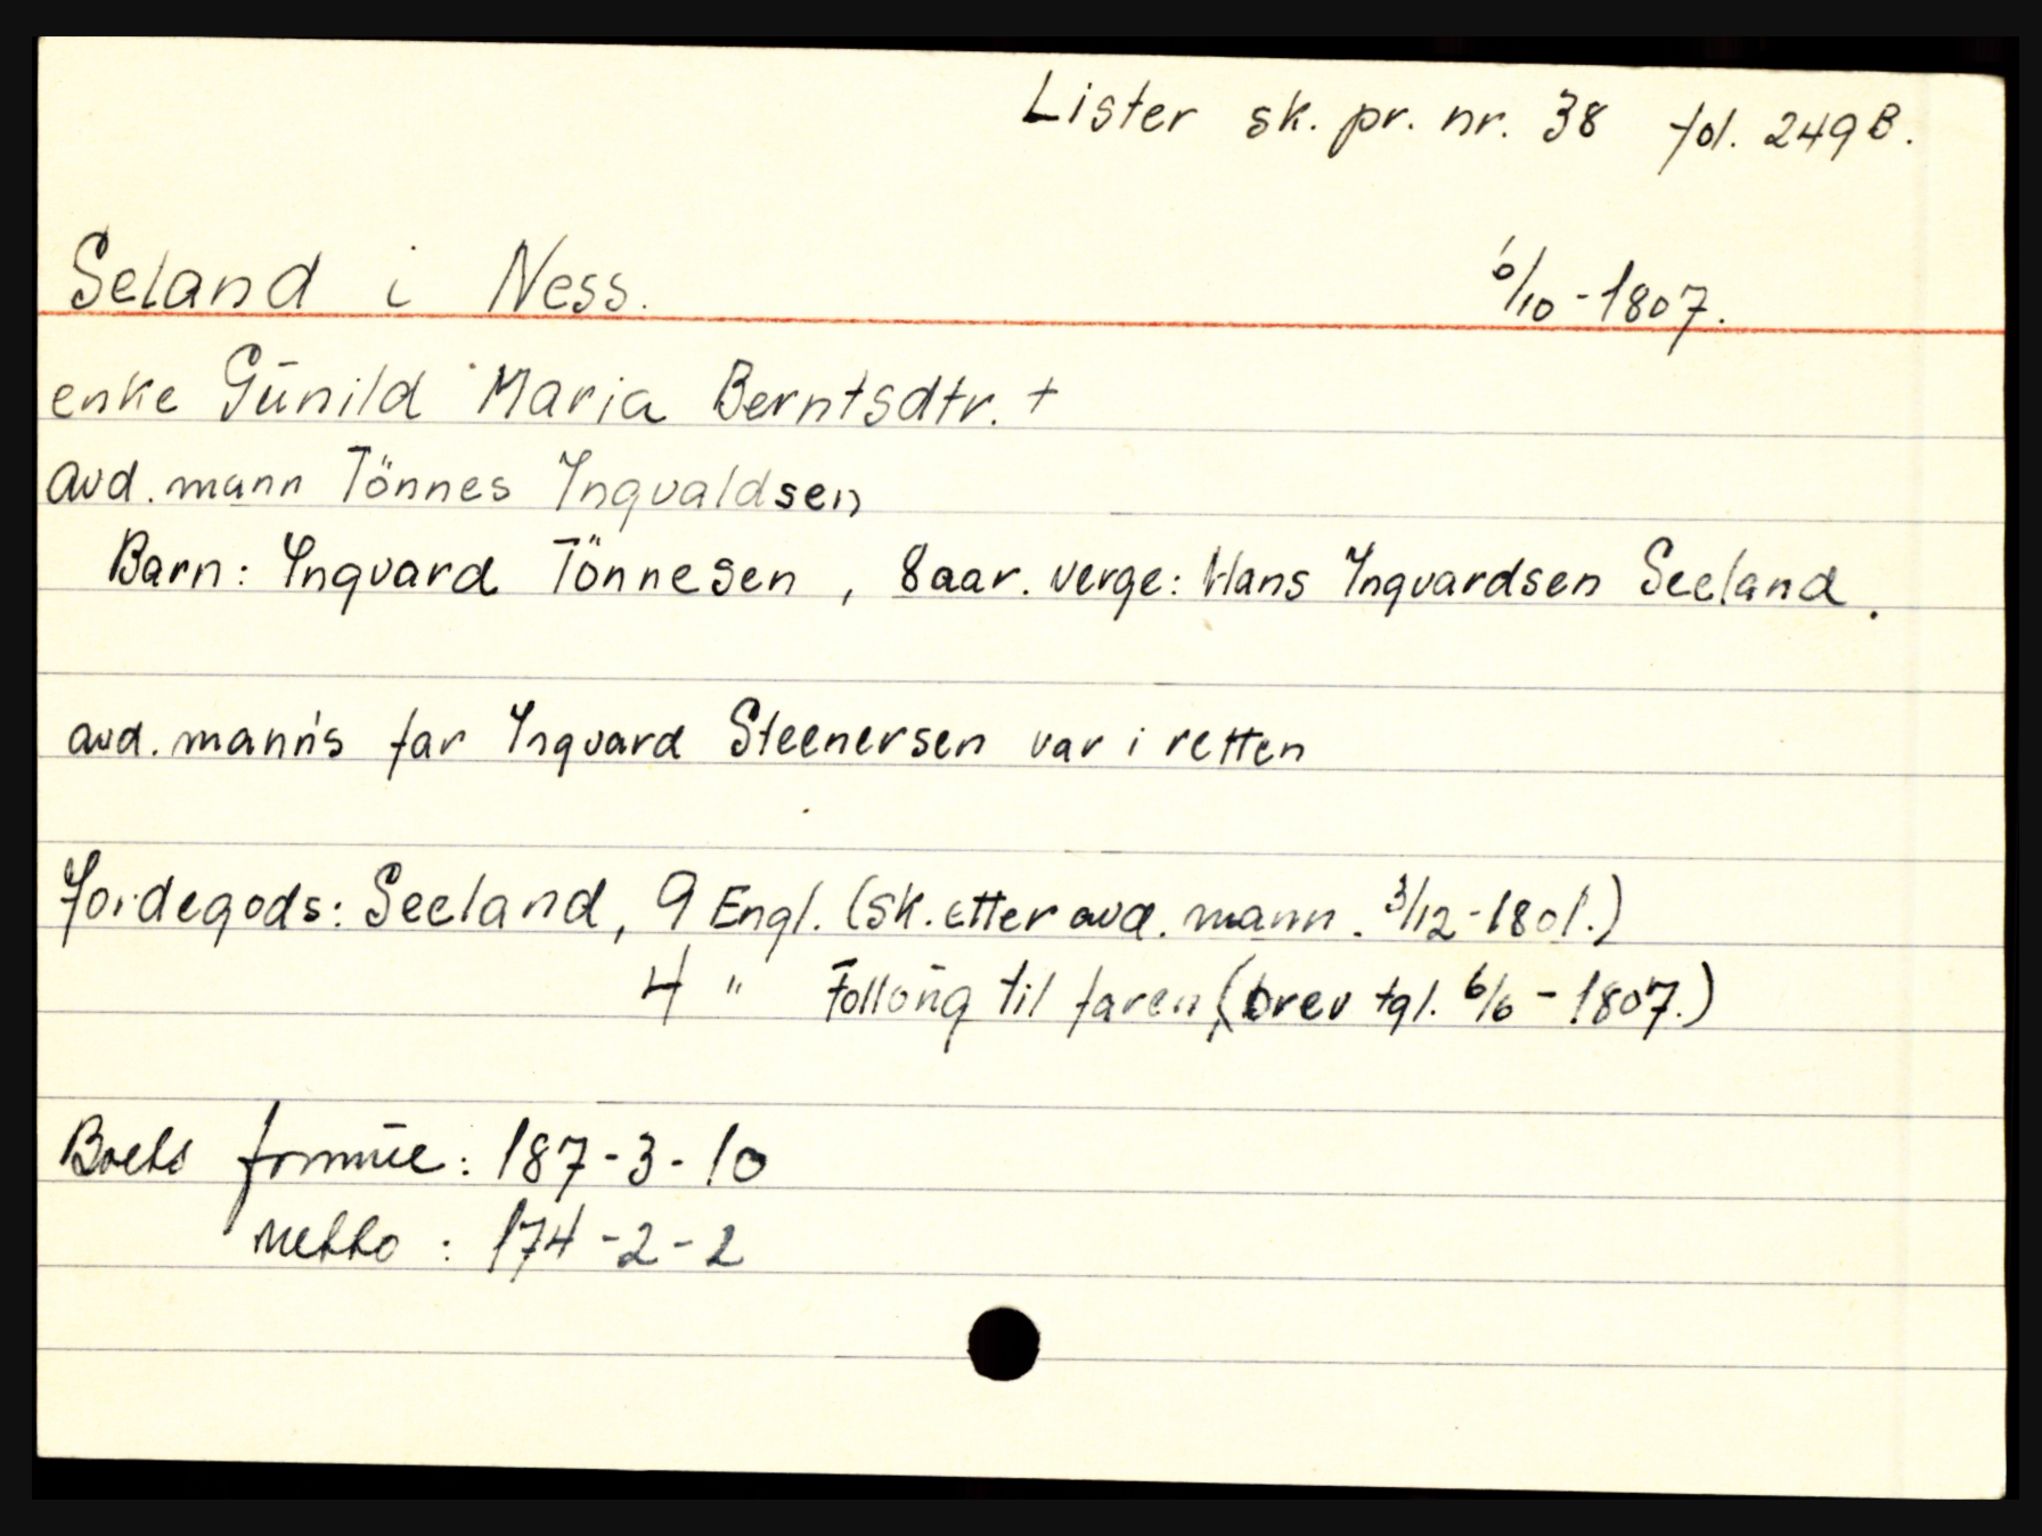 Lister sk. pr. nr. 38 fol. 249 B.
Seland i Ness. 6/10 - 1807.
enke Gūnild Maria Berntsdtr. +
avd. mann Tönnes Yngvaldsen
Barn: Yngvard Tönnesen, 8 aar. verge: Hans Yngvardsen Seeland.
avd. mann's far Yngvard Steenersen var i retten
Jordegods: Seeland, 9 Engl. (sk. etter avd. mann. 3/12 - 1801.)
4 " Follōng til faren (brev tgl. 6/6 - 1807.)
Boets formūe: 187 - 3 - 10
netto: 174 - 2 - 2